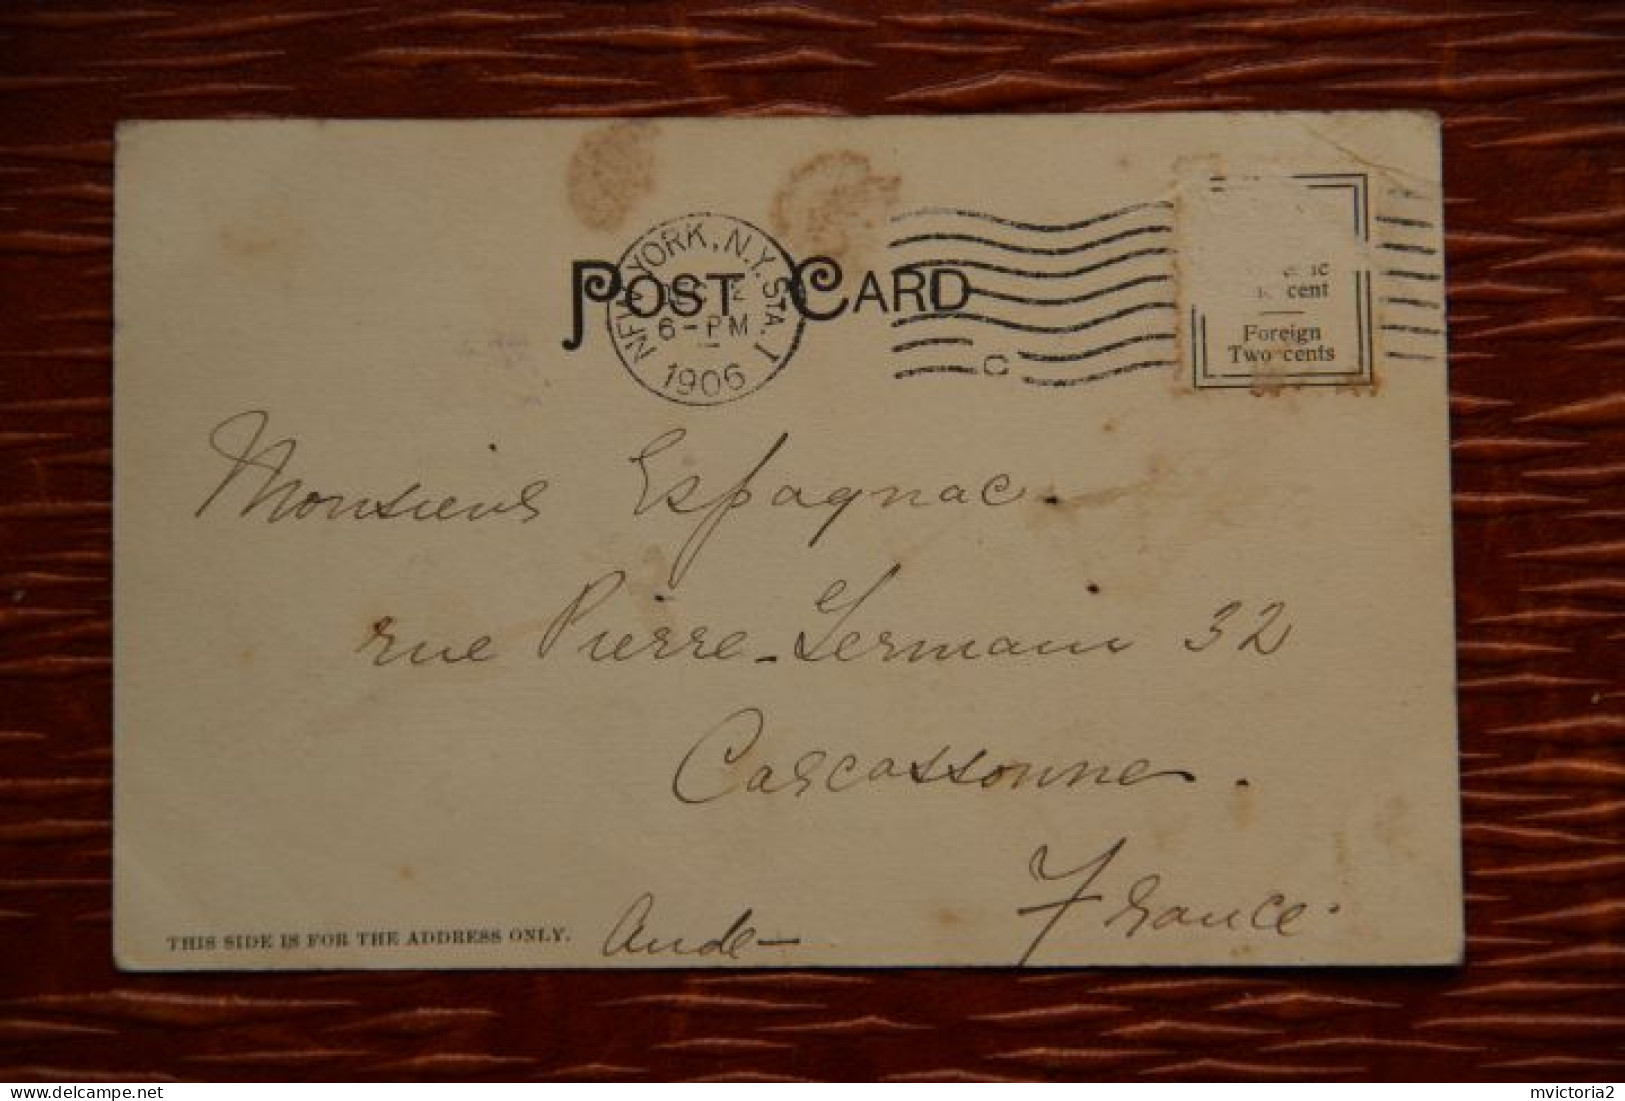 POST CARD
NEW YORK, N.Y. STA. I
6-PM
1906
C
cent
Foreign
Two cents
Monsieur Espagnac.
rue Pierre-Germain 32
Carcassonne.
France.
Aude-
THIS SIDE IS FOR THE ADDRESS ONLY.
mvictoria2